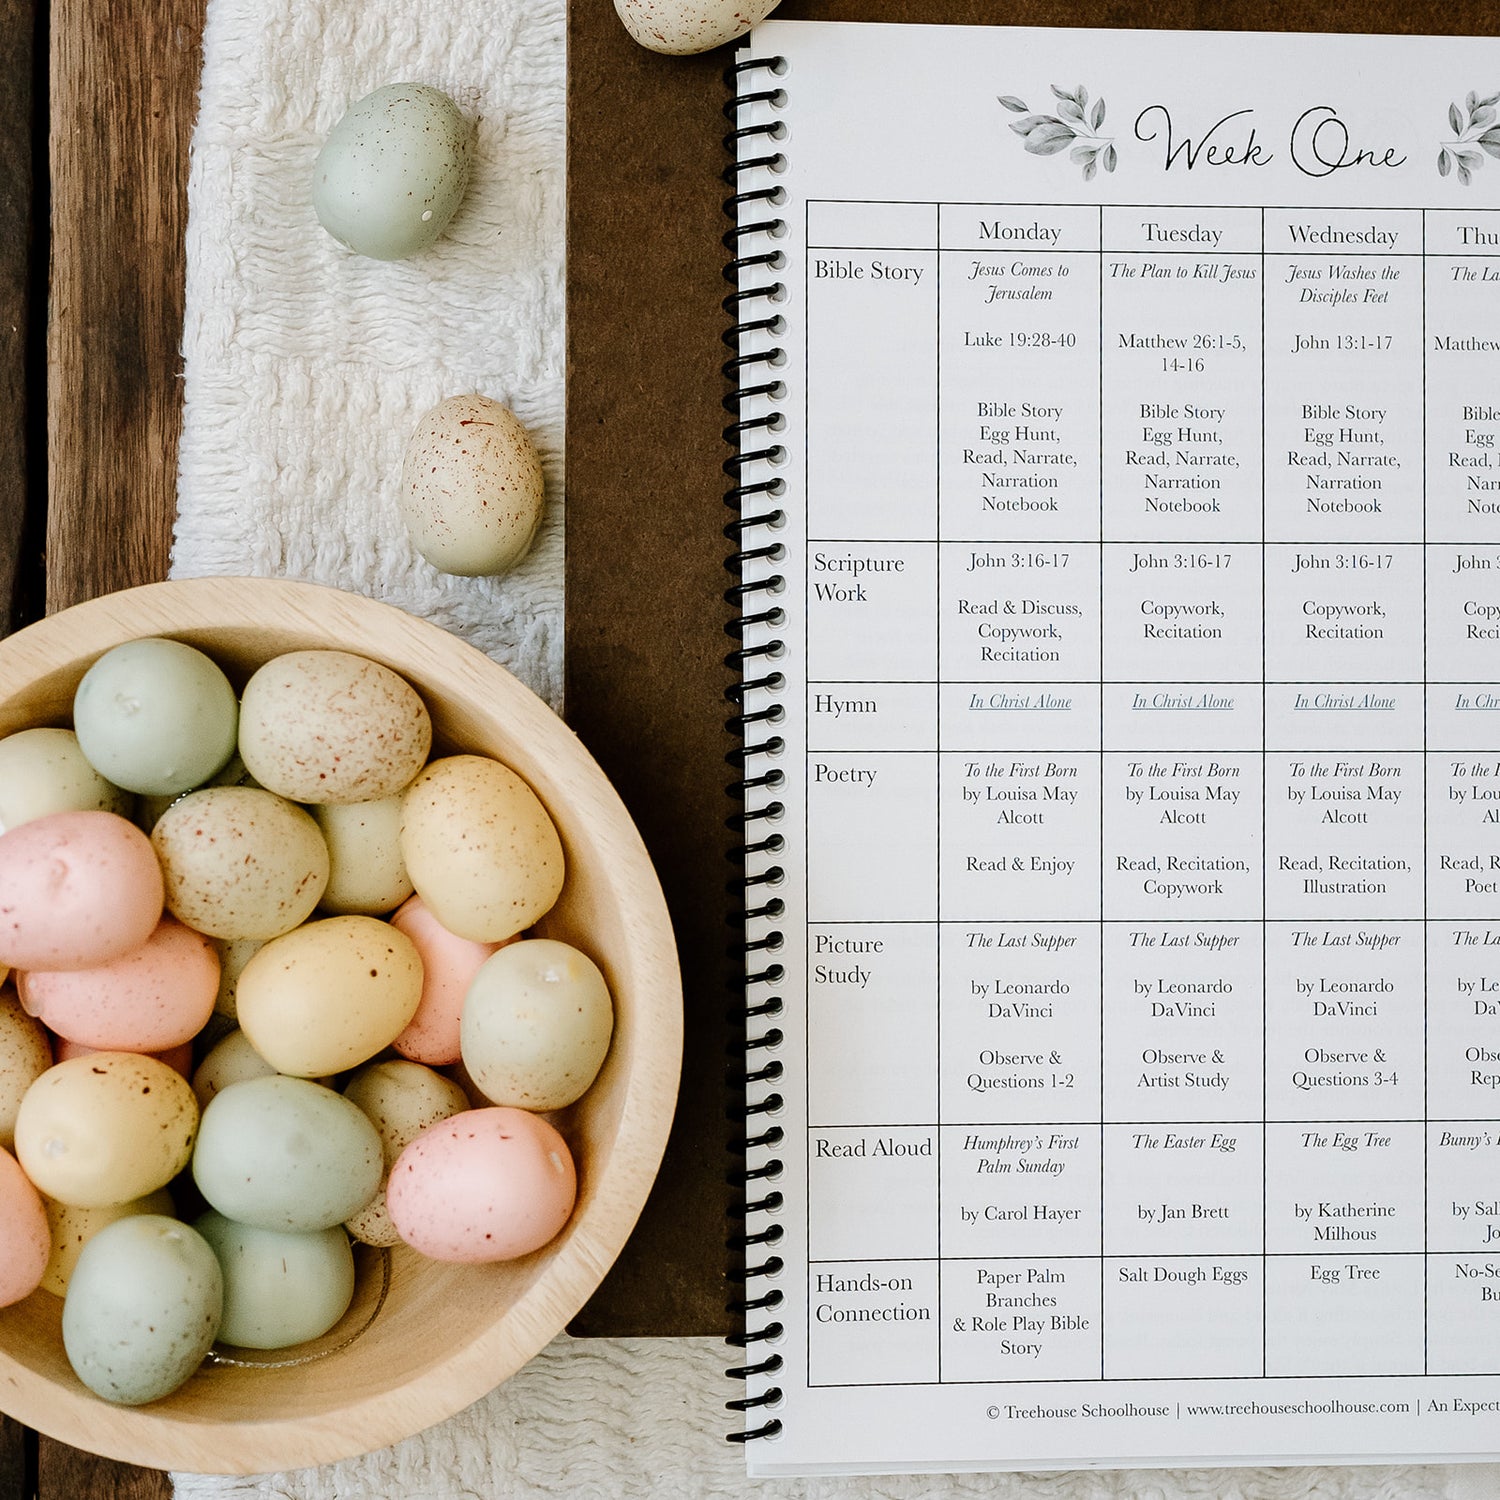 Week One
Monday Tuesday Wednesday
Bible Story
Jesus Comes to
Jerusalem
Luke 19:28-40
Bible Story
Egg Hunt,
Read, Narrate,
Narration
Notebook
The Plan to Kill Jesus
Matthew 26:1-5,
14-16
Bible Story
Egg Hunt,
Read, Narrate,
Narration
Notebook
Jesus Washes the
Disciples Feet
John 13:1-17
Bible Story
Egg Hunt,
Read, Narrate,
Narration
Notebook
The
Matthew
Bible
Egg
Read,
Scripture
Work
John 3:16-17
Read & Discuss,
Copywork,
Recitation
John 3:16-17
Copywork,
Recitation
John 3:16-17
Copywork,
Recitation
John
Hymn
In Christ Alone
In Christ Alone
In Christ Alone
In
Poetry
To the First Born
by Louisa May
Alcott
Read & Enjoy
To the First Born
by Louisa May
Alcott
Read, Recitation,
Copywork
To the First Born
by Louisa May
Alcott
Read, Recitation,
Illustration
To the
by
Read,
Picture
Study
The Last Supper
by Leonardo
DaVinci
Observe &
Questions 1-2
The Last Supper
by Leonardo
DaVinci
Observe &
Artist Study
The Last Supper
by Leonardo
DaVinci
Observe &
Questions 3-4
The
by
Read Aloud
Humphrey's First
Palm Sunday
by Carol Hayer
The Easter Egg
by Jan Brett
The Egg Tree
by Katherine
Milhous
Bunny's
by
Hands-on
Connection
Paper Palm
Branches
& Role Play Bible
Story
Salt Dough Eggs
Egg Tree
© Treehouse Schoolhouse | www.treehouseschoolhouse.com | An